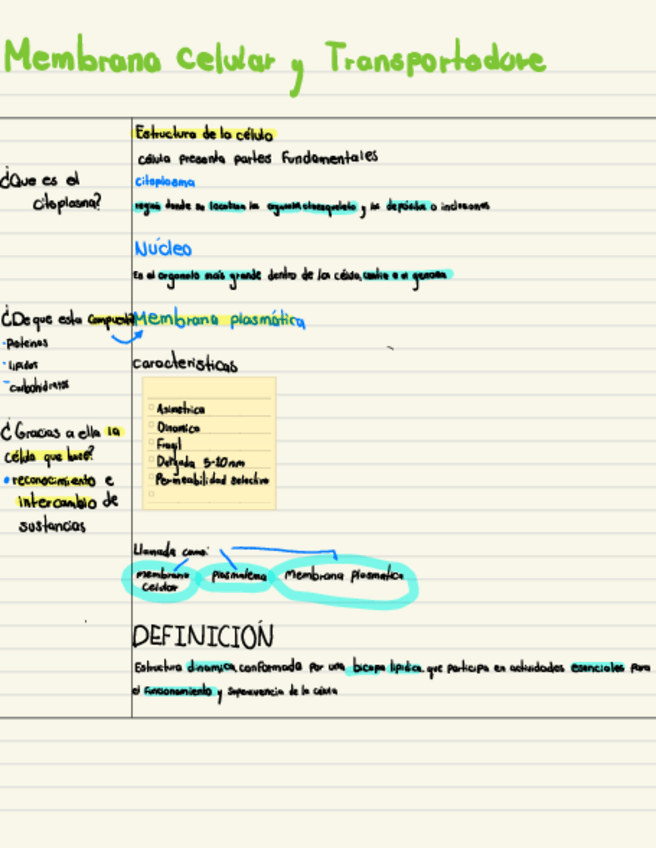 Membrana Celular y Transportadore
Estructura de la célula
célula presenta partes Fundamentales
¿Que es el
citoplasma?
citoplasma
región donde se localizan los y los depósitos o inclusiones
Núcleo
Es el organelo más grande dentro de la célula, contiene el genoma
¿De que esta compuesta
·Proteinas
·Lipidos
-carbohidratos
Membrana plasmática
características
Asimetrica
Dinamica
Fragil
Delgada 5-10nm
Permeabilidad selectiva
¿Gracias a ella la
célula que hace?
•reconocimiento e
intercambio de
sustancias
Llamada como:
membrana
celular
plasmalema
Membrana Plasmatica
DEFINICIÓN
Estructura dinamica, conformada por una bicapa lipidica, que participa en actividades esenciales para
el funcionamiento y supervivencia de la célula